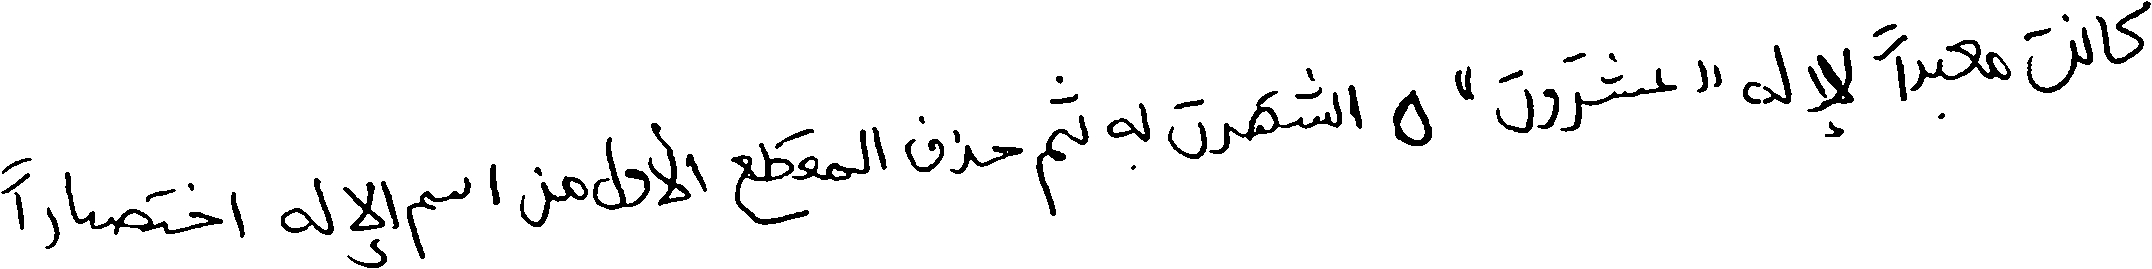 كانت معبداً لإله "عشروت" و اشتهرت به ثم حذف المقطع الأول من اسم الإله اختصاراً